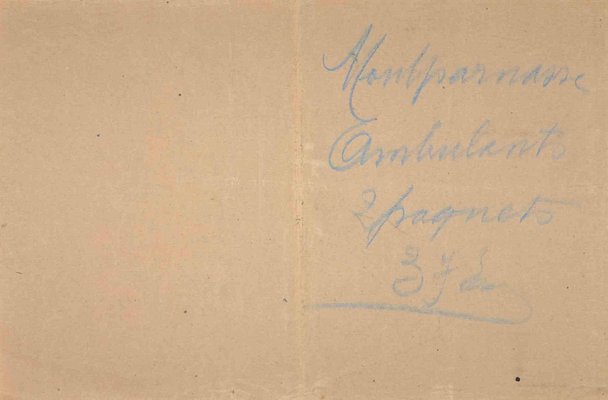 Montparnasse
Ambulants
2 paquets